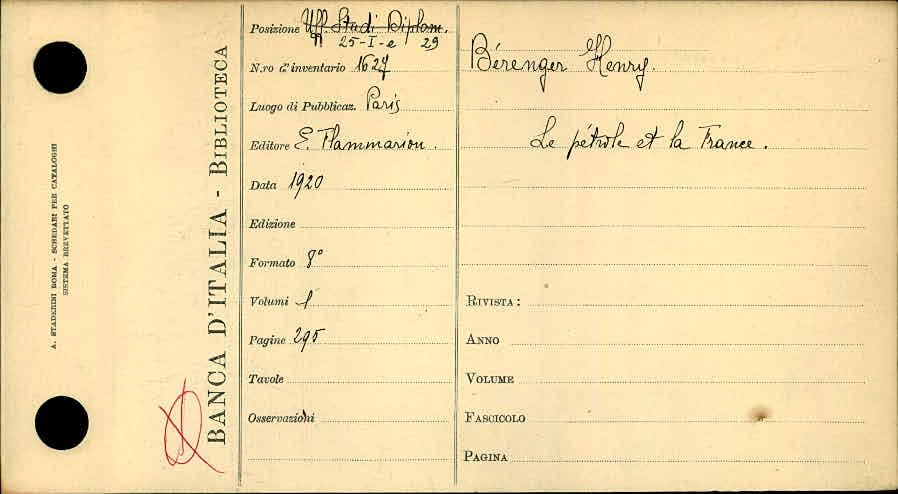 A. STADERINI ROMA - SCHEDARI PER CATALOGHI
SISTEMA BREVETTATO
BANCA D'ITALIA - BIBLIOTECA
Posizione Uff. Studi Diplom.
25-I-e 29
N.ro d'inventario 1627
Luogo di Pubblicaz. Paris
Editore E. Flammarion.
Data 1920
Edizione
Formato 8°
Volumi 1
Pagine 295
Tavole
Osservazioni
Bérenger Henry.
Le pétrole et la France.
RIVISTA:
ANNO
VOLUME
FASCICOLO
PAGINA